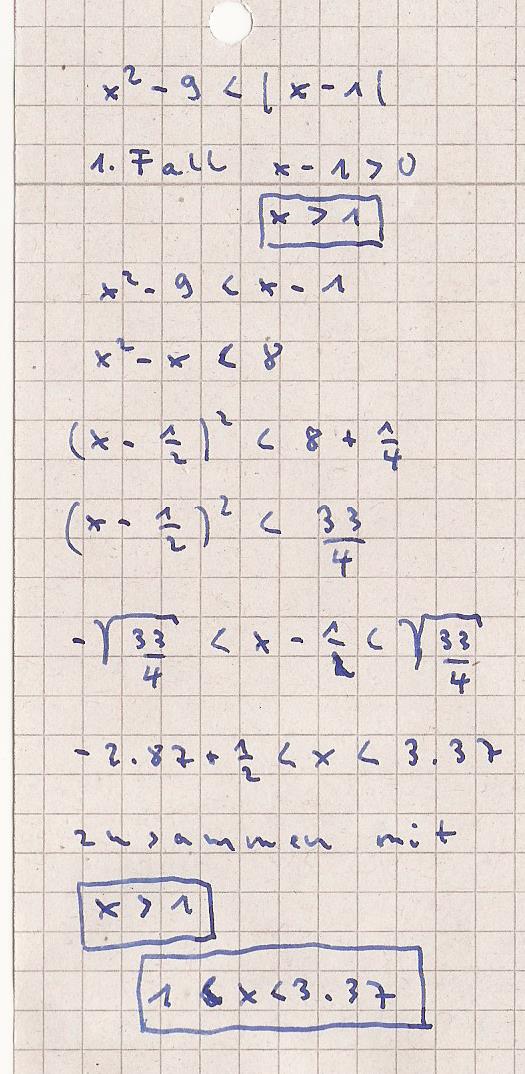 x² - 9 < | x - 1 |
1. Fall x - 1 > 0
x > 1
x² - 9 < x - 1
x² - x < 8
(x - 1/2)² < 8 + 1/4
(x - 1/2)² < 33/4
-√(33/4) < x - 1/2 < √(33/4)
-2.87 + 1/2 < x < 3.37
zusammen mit
x > 1
1 < x < 3.37